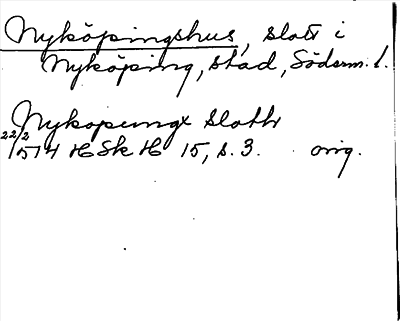 Nyköpingshus, slott i
Nyköping, stad, Söderm. l.
Nykopungx Sloth
22/2 1574 HSkH 15, s. 3. orig.